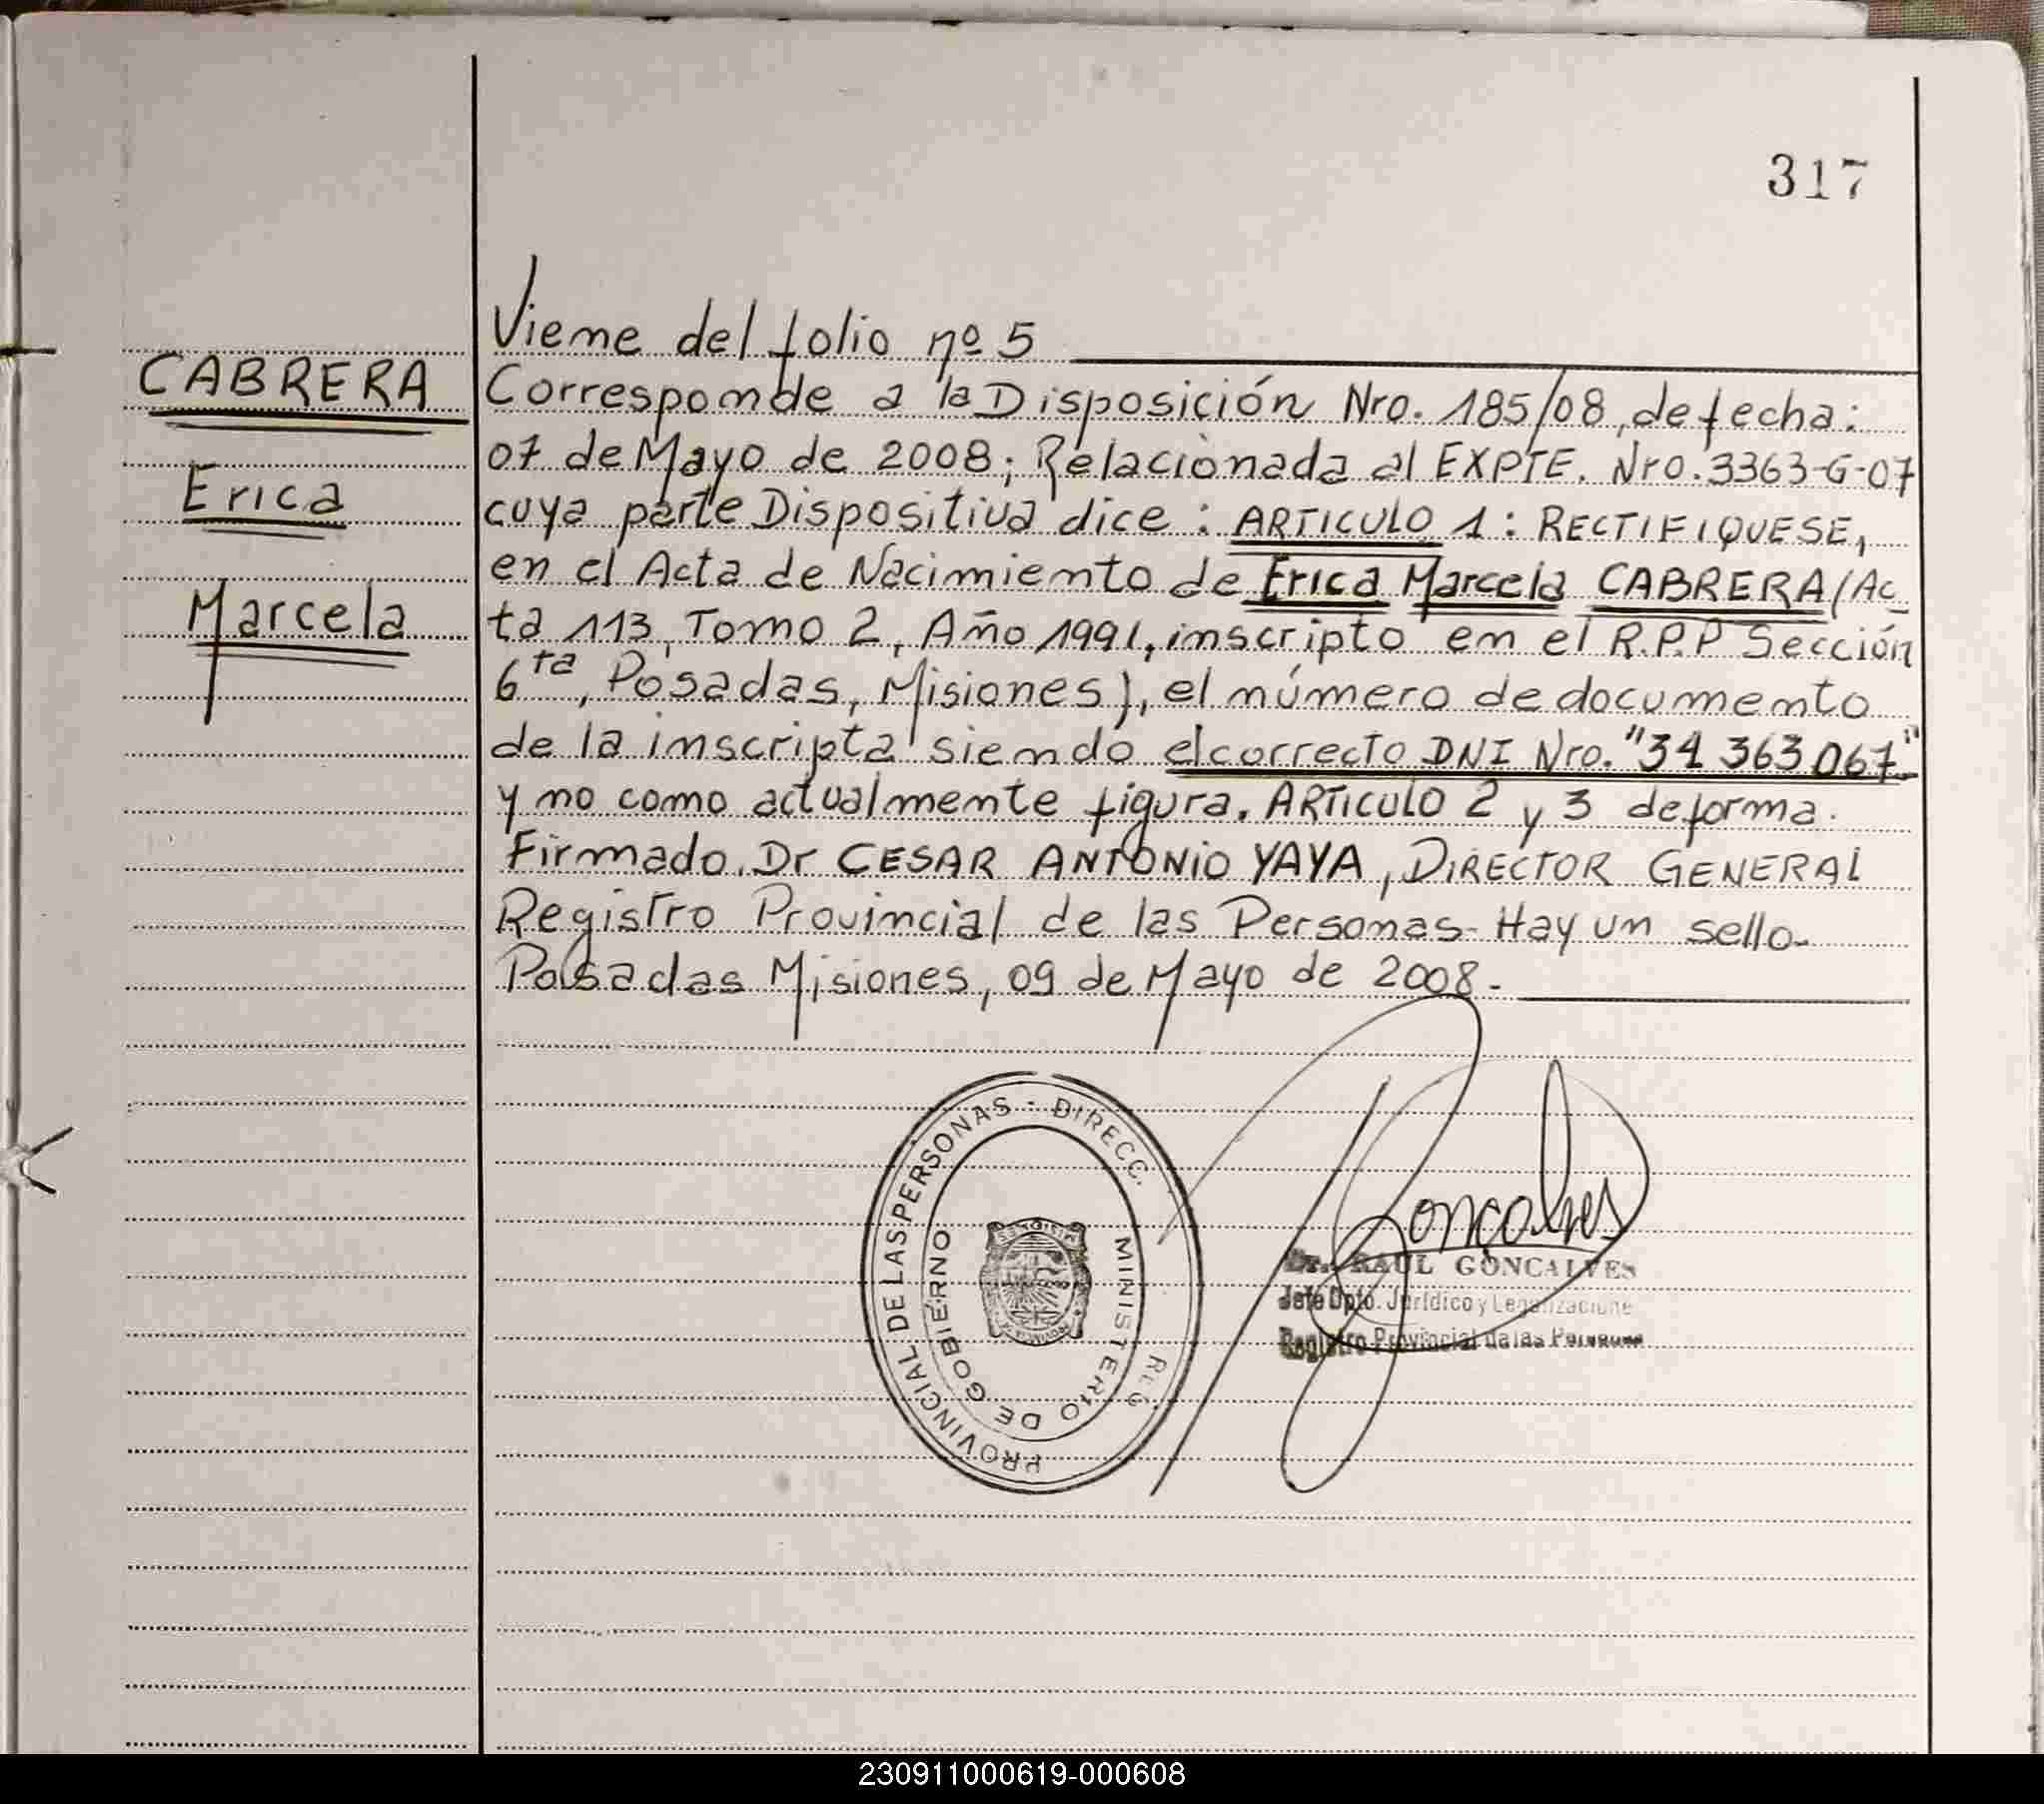 317
Viene del folio nº 5
CABRERA
Erica
Marcela
Corresponde a la Disposición Nro. 185/08, de fecha:
07 de Mayo de 2008; Relacionada al EXPTE. Nro. 3363-G-07
cuya parte Dispositiva dice: ARTICULO 1: RECTIFIQUESE,
en el Acta de Nacimiento de Erica Marcela CABRERA (Ac
ta 113, Tomo 2, Año 1991, inscripto en el R.P.P Sección
6ta, Posadas, Misiones), el número de documento
de la inscripta siendo el correcto DNI Nro. "34 363 067"
y no como actualmente figura. ARTICULO 2 y 3 de forma.
Firmado. Dr CESAR ANTONIO YAYA, DIRECTOR GENERAL
Registro Provincial de las Personas - Hay un sello-
Posadas Misiones, 09 de Mayo de 2008.-
DIRECC. REG. PROVINCIAL DE LAS PERSONAS -
MINISTERIO DE GOBIERNO
Goncalves
Dr. RAUL GONCALVES
Jefe Dpto. Jurídico y Legalizacione
Registro Provincial de las Personas
230911000619-000608